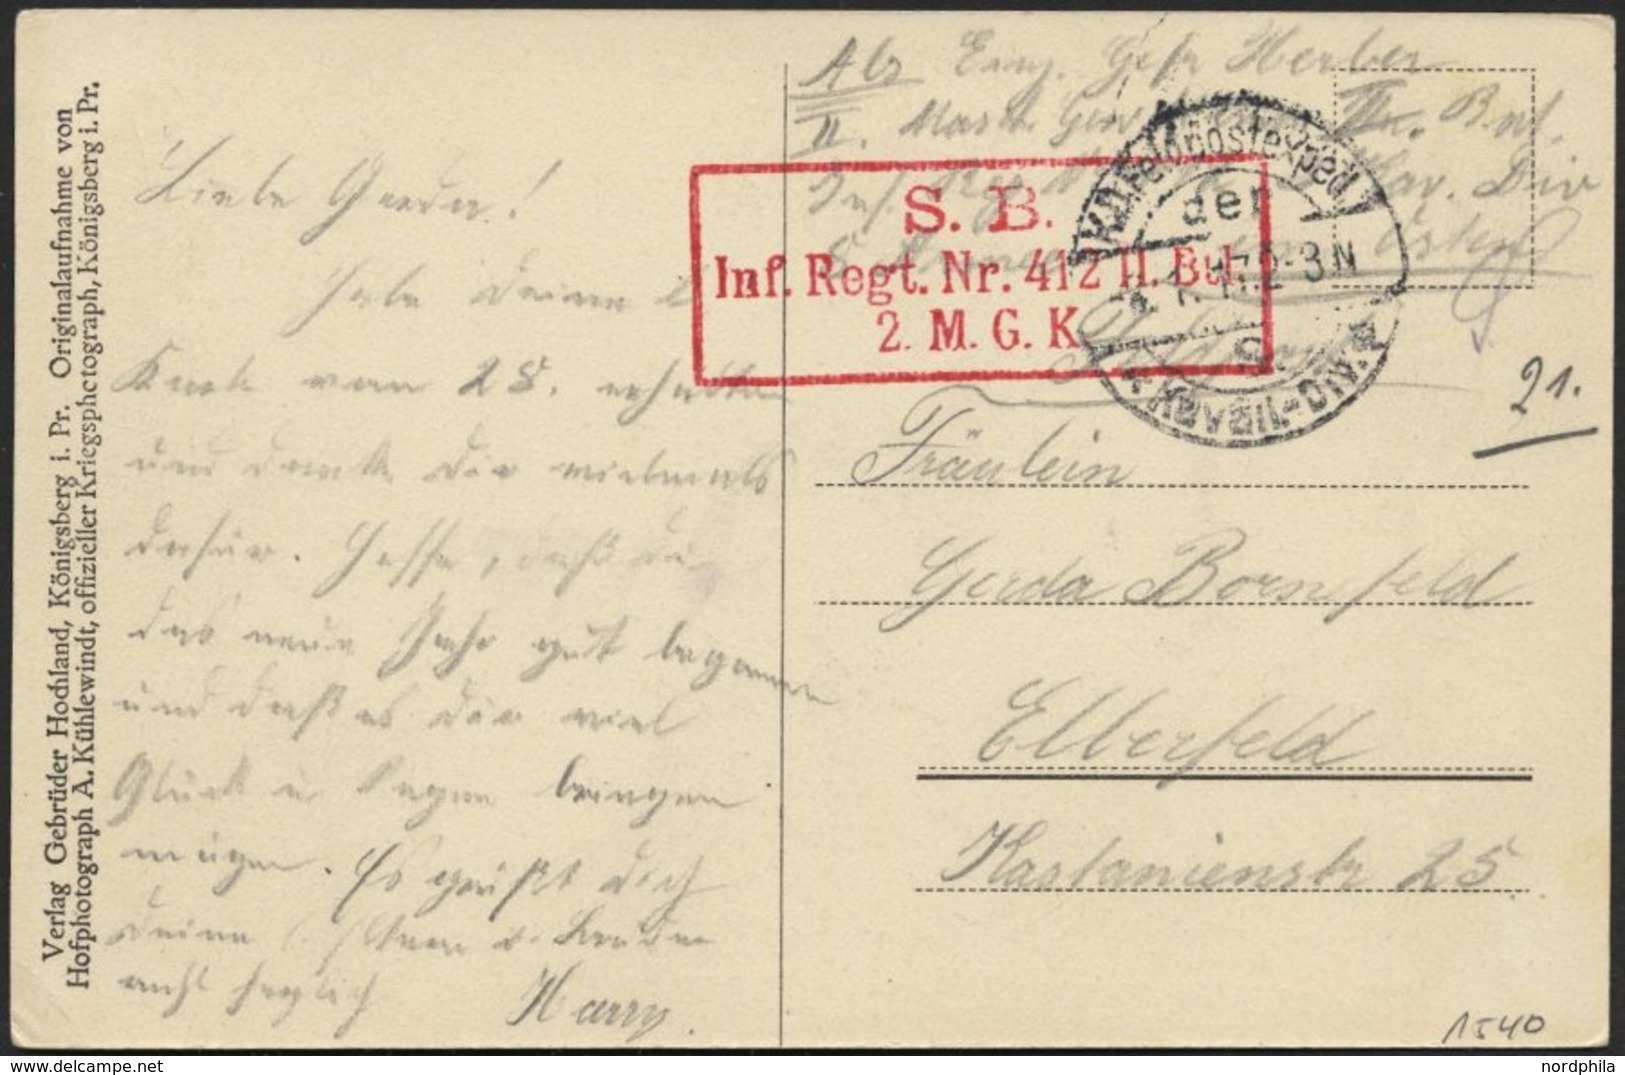 Verlag Gebrüder Hochland, Königsberg i. Pr. Originalaufnahme von
Hofphotograph A. Kühlewindt, offizieller Kriegsphotograph, Königsberg i. Pr.
Liebe Gerda!
Habe Deine l.
Karte vom 28. erhalten
und danke Dir vielmals
dafür. Hoffe, daß Du
das neue Jahr gut begonnen
und daß es Dir viel
Glück u Segen bringen
mögen. Es grüßt Dich
Deine Eltern u. Bruder
recht herzlich
Harry.
Abs Einj. Gefr Herber
II. Masch. Gew. II. Batl.
Inf. Reg. Kav. Div
Osten
S. B.
Inf. Regt. Nr. 412 II. Btl.
2. M. G. K.
K.D. Feldpostexped.
der
2-3N
Kavall.-Div.
21.
Fräulein
Gerda Bornefeld
Elberfeld
Kastanienstr 25
1540
nordphila